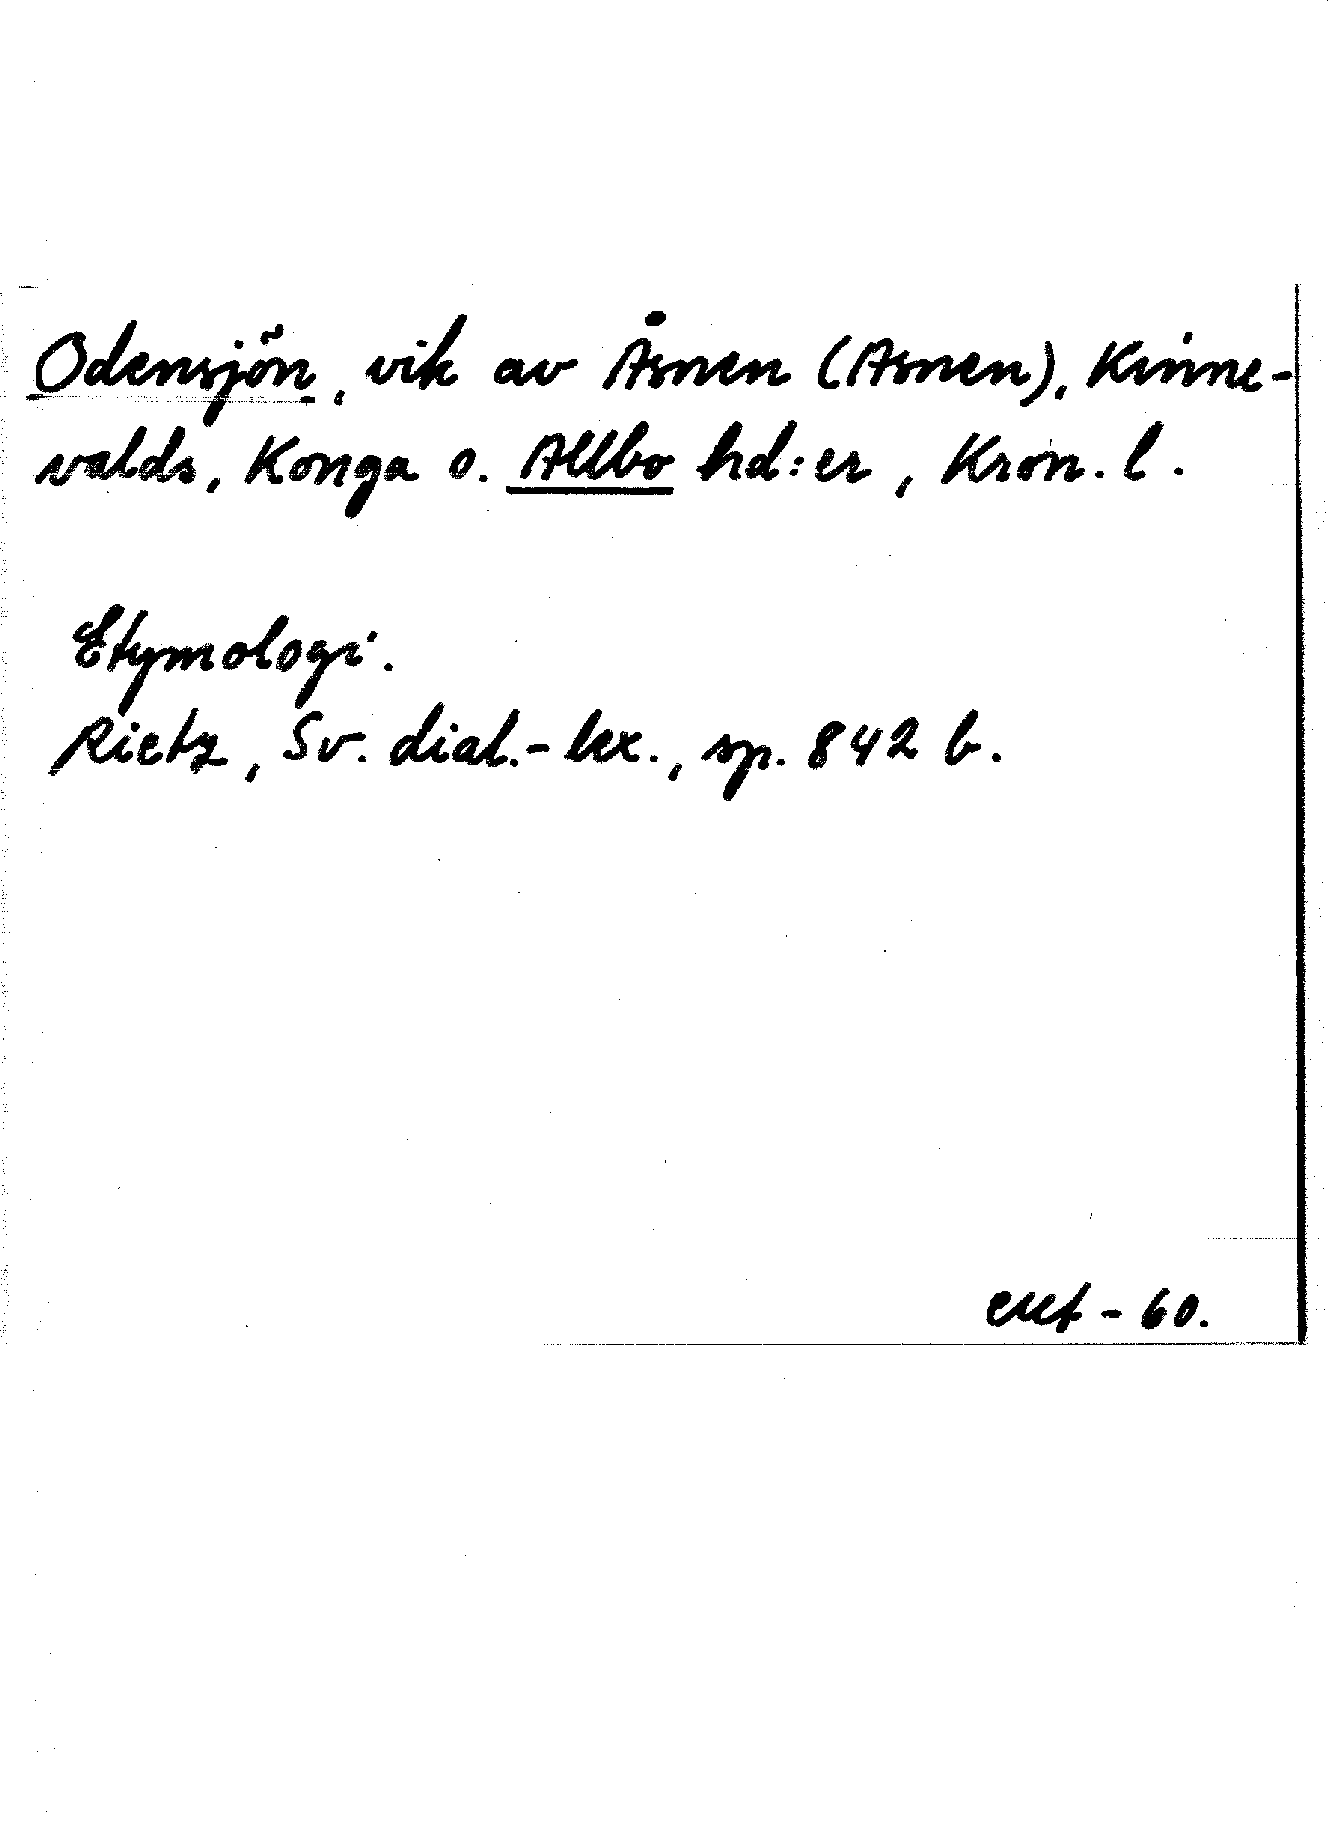 Odensjön, vik av Åsnen (Asnen), Kinne-
valds, Konga o. Allbo hd:er, Kron. l.
Etymologi.
Rietz, Sv. dial.-lex., sp. 842 b.
-60.